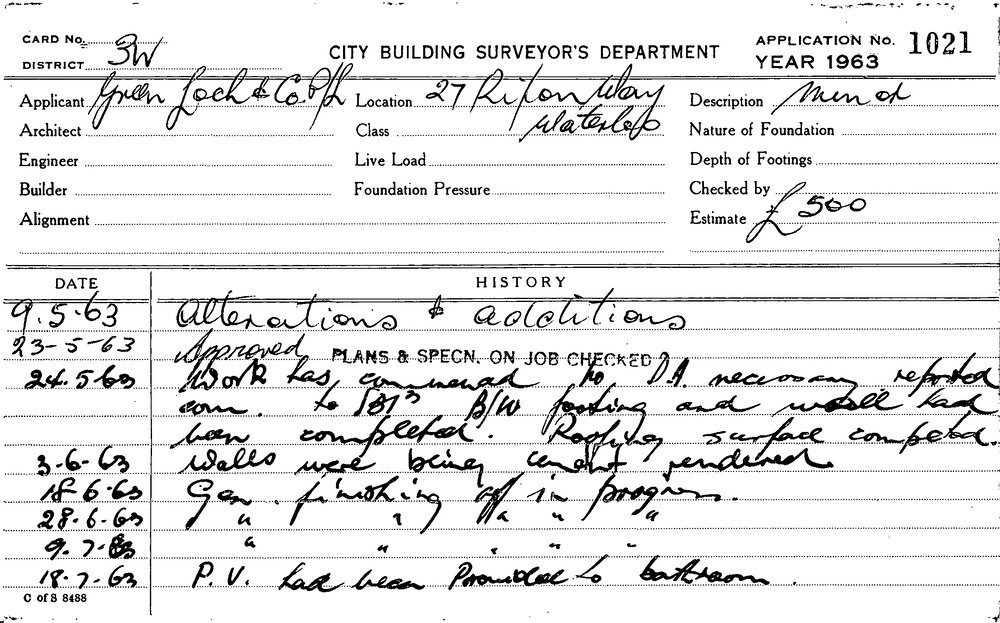 CARD No.
DISTRICT 3W
CITY BUILDING SURVEYOR'S DEPARTMENT
APPLICATION No. 1021
YEAR 1963
Applicant Green Loch & Co. P/L
Location 27 Ripon Way
Waterloo
Description Minor
Architect
Class
Nature of Foundation
Engineer
Live Load
Depth of Footings
Builder
Foundation Pressure
Checked by
Alignment
Estimate £ 500
DATE HISTORY
9.5.63 Alterations & additions
23-5-63 Approved PLANS & SPECN. ON JOB CHECKED ?
24.5.63 Work has commenced No D.A. necessary reported
com. to B/W footing and wall had
been completed. Roofing surface completed.
3-6-63 Walls were being cement rendered.
18-6-63 Gen. finishing off in progress.
28.6.63 " " " " "
9.7.63 " " " " "
18.7.63 P.V. had been Provided to bathroom.
C of S 8488